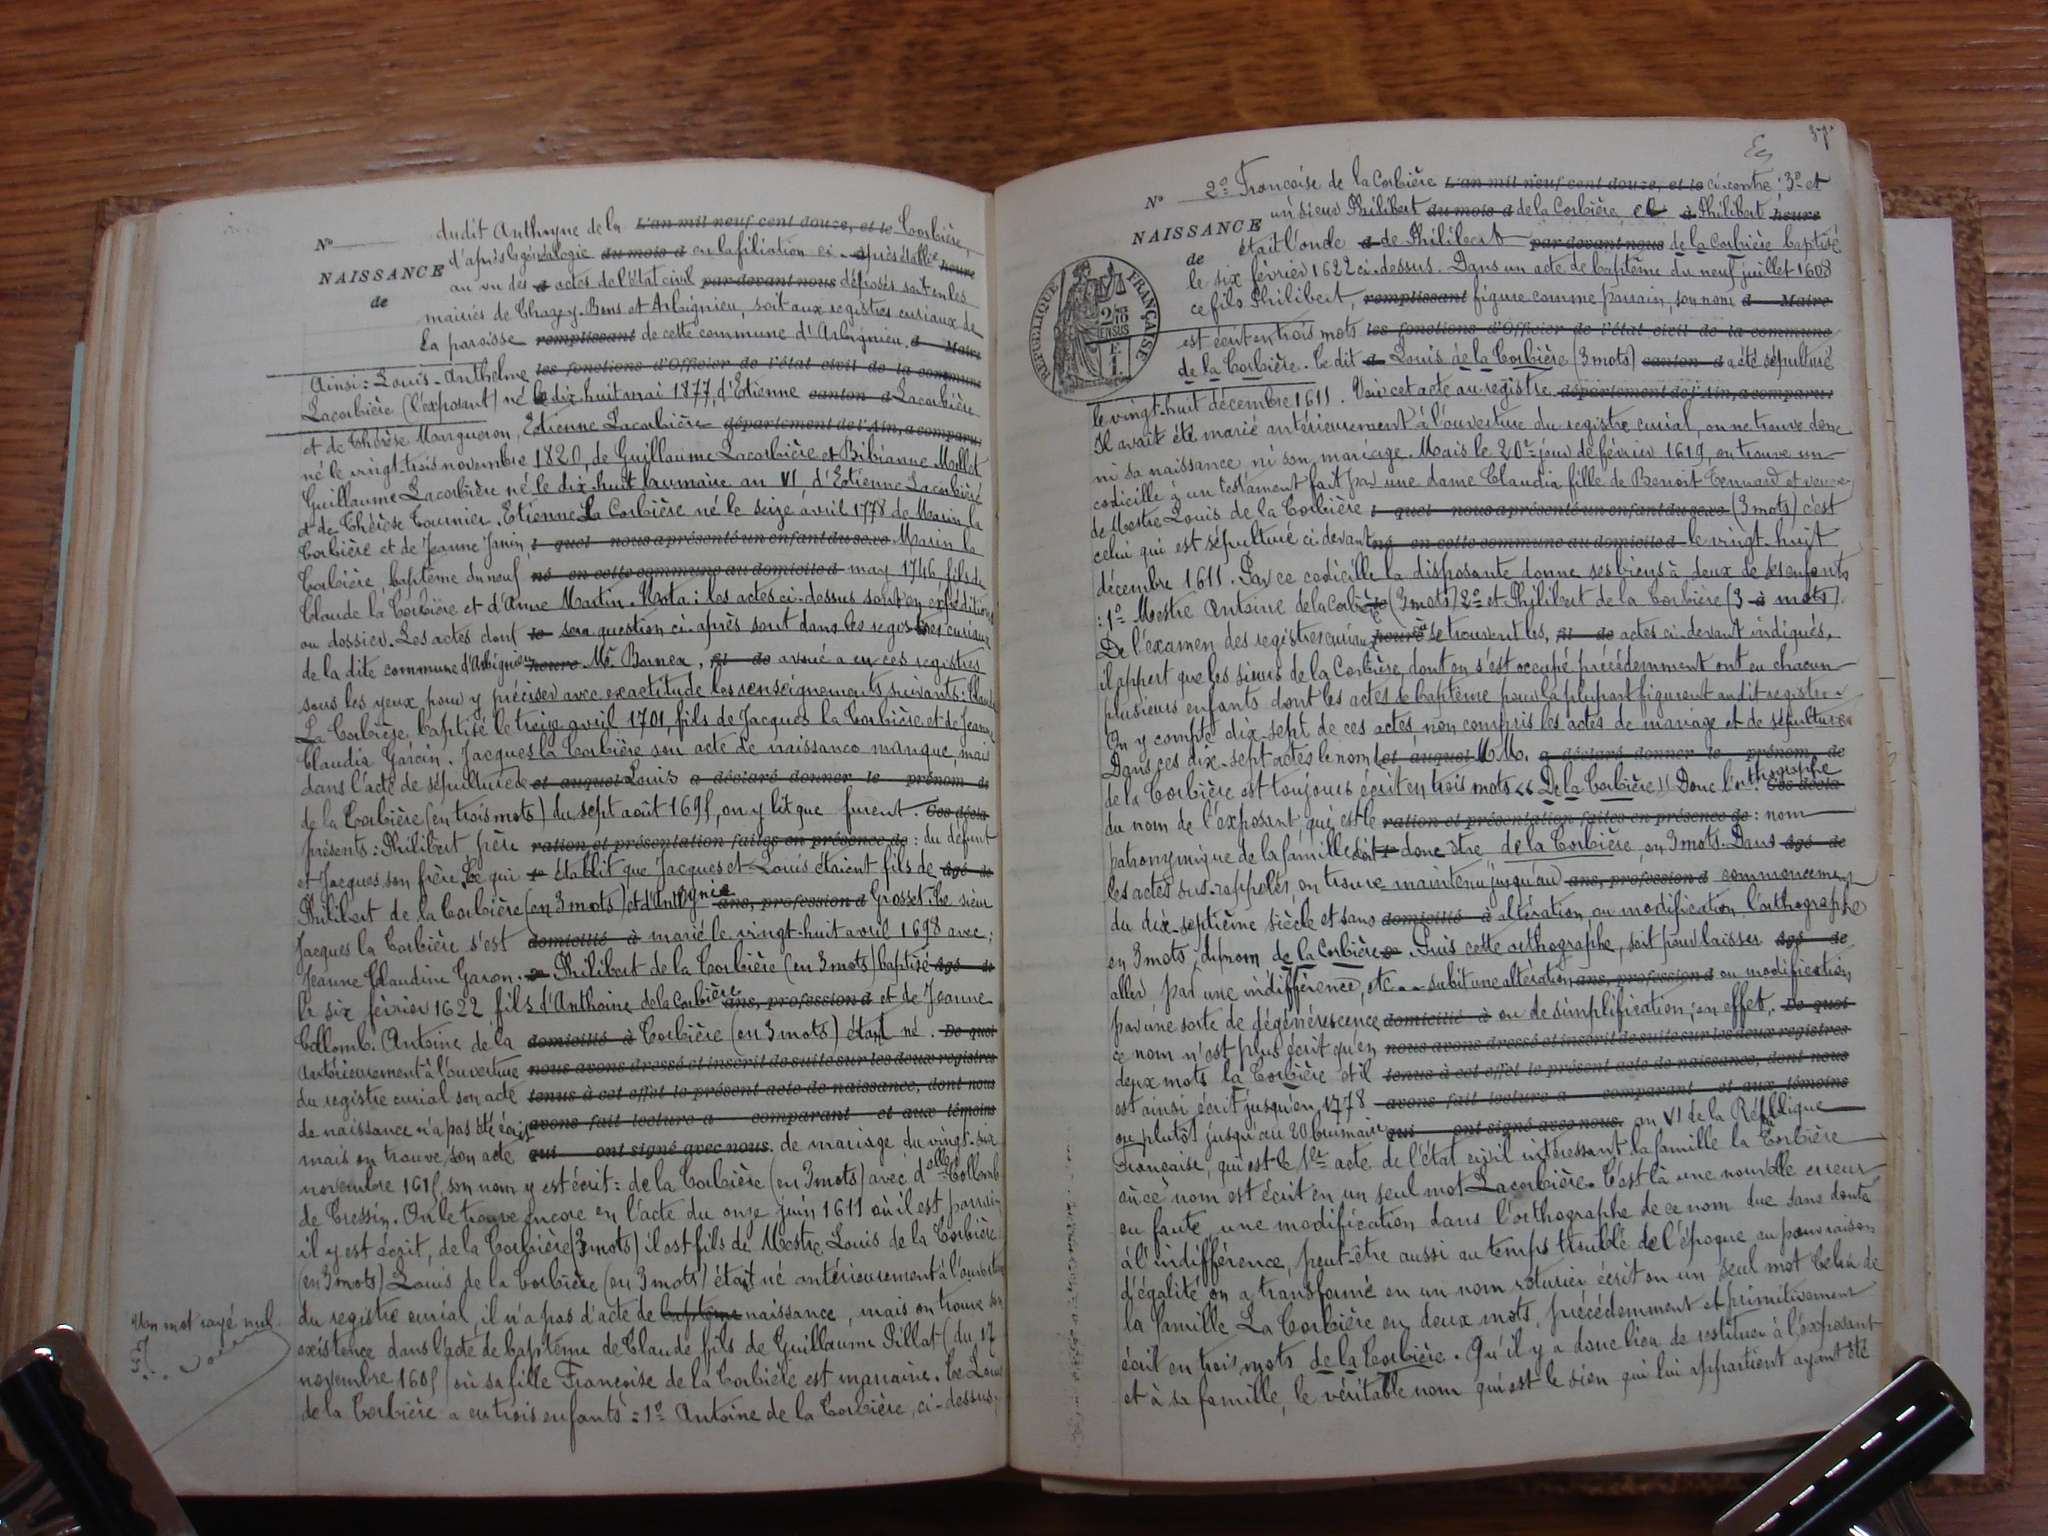 Nº dudit Anthoyne de la L'an mil neuf cent douze, et le Corbière,
NAISSANCE d'après la généalogie du mois d ou la filiation ci-après établie heure
de au vu des d actes de l'état civil par devant nous déposés soit en les
mairies de Chazey-Bons et Arbignieu, soit aux registres curiaux de
la paroisse remplissant de cette commune d'Arbignieu. d Maire
Ainsi: Louis-Anthelme les fonctions d'Officier de l'état civil de la commune
Lacorbière (l'exposant) né le dix huit mai 1877, d'Etienne canton d Lacorbière
et de Thérèse Margueron, Etienne Lacorbière département de l'Ain, a comparu
né le vingt-trois novembre 1820, de Guillaume Lacorbière et Bibianne Mollet
Guillaume Lacorbière né le dix-huit brumaire an VI d'Etienne Lacorbière
et de Thérèse Tournier. Etienne La Corbière né le seize avril 1778 de Marin la
Corbière et de Jeanne Janin, l quel nous a présenté un enfant du sexe Marin la
Corbière, baptême du neuf né en cette commune au domicile d may 1746, fils de
Claude la Corbière et d'Anne Martin. Nota: les actes ci-dessus sont en expéditions
au dossier. Les actes dont le sera question ci-après sont dans les registres curiaux
de la dite commune d'Arbignieu heure Me Bornex, fil de avoué a eu ces registres
sous les yeux pour y préciser avec exactitude les renseignements suivants: Claude
La Corbière baptisé le treize avril 1701, fils de Jacques la Corbière et de Jeanne
Claudia Garcin. Jacques la Corbière son acte de naissance manque, mais
dans l'acte de sépulture de et auquel Louis a déclaré donner le prénom de
de la Corbière (en trois mots) du sept août 1695, on y lit que furent. Ces décla-
présents: Philibert frère ration et présentation faites en présence de : du défunt
et Jacques son frère. Ce qui le établit que Jacques et Louis étaient fils de âgé de
Philibert de la Corbière (en 3 mots) et d'Anthoynie ans, profession d Grosset. Le sieur
Jacques la Corbière s'est domicilié à marié le vingt-huit avril 1698 avec:
Jeanne Claudine Garon. Philibert de la Corbière (en 3 mots) baptisé âgé de
le six février 1622 fils d'Anthoine de la Corbière ans, profession d et de Jeanne
Collomb. Antoine de la domicilié à Corbière (en 3 mots) étant né. De quoi
antérieurement à l'ouverture nous avons dressé et inscrit de suite sur les deux registres
du registre curial son acte tenus à cet effet le présent acte de naissance, dont nous
de naissance n'a pas été écrit avons fait lecture a comparant et aux témoins
mais on trouve son acte qui ont signé avec nous. de mariage du vingt-six
novembre 1615, son nom y est écrit: de la Corbière (en 3 mots) avec delle Collomb
de Cressin. On le trouve encore en l'acte du onze juin 1611 où il est parrain
il y est écrit, de la Corbière (3 mots) il est fils de Mestre Louis de la Corbière
(en 3 mots) Louis de la Corbière (en 3 mots) était né antérieurement à l'ouverture
du registre curial, il n'a pas d'acte de baptême naissance, mais on trouve son
Un mot rayé nul.
existence dans l'acte de baptême de Claude fils de Guillaume Pillat (du 17
novembre 1605) où sa fille Françoise de la Corbière est marraine. Ce Louis
de la Corbière a eu trois enfants: 1º Antoine de la Corbière, ci-dessus;
37
Nº 2º Françoise de la Corbière L'an mil neuf cent douze, et le ci-contre; 3º et
NAISSANCE un sieur Philibert du mois d de la Corbière, à Philibert heure
de était l'oncle d de Philibert par devant nous de la Corbière baptisé
le six février 1622 ci-dessus. Dans un acte de baptême du neuf juillet 1608
ce fils Philibert, remplissant figure comme parrain, son nom d Maire
est écrit en trois mots les fonctions d'Officier de l'état civil de la commune
de la Corbière. Le dit d Louis de la Corbière (3 mots) canton d a été sépulturé
RÉPUBLIQUE FRANÇAISE
le vingt-huit décembre 1611. Voir cet acte au registre. département de l'Ain, a comparu
Il avait été marié antérieurement à l'ouverture du registre curial, on ne trouve donc
ni sa naissance ni son mariage. Mais le 20e jour de février 1619, on trouve un
codicille à un testament fait par une dame Claudia fille de Benoit Tennard et veuve
de Mestre Louis de la Corbière l quel nous a présenté un enfant du sexe (3 mots) c'est
celui qui est sépulturé ci-devant né en cette commune au domicile d le vingt-huit
décembre 1611. Par ce codicille la disposante donne ses biens à deux de ses enfants
: 1º Mestre Antoine de la Corbière (3 mots) 2º et Philibert de la Corbière (3 à mots).
De l'examen des registres curiaux heure où se trouvent les, fil de actes ci-devant indiqués,
il appert que les sieurs de la Corbière, dont on s'est occupé précédemment ont eu chacun
plusieurs enfants dont les actes de baptême pour la plupart figurent audit registre.
On y compte dix-sept de ces actes, non compris les actes de mariage et de sépulture.
Dans ces dix-sept actes le nom et auquel M.M. a déclaré donner le prénom de
de la Corbière est toujours écrit en trois mots « De la Corbière » Donc l'orthographe Ces décla-
du nom de l'exposant, qui est le ration et présentation faites en présence de : nom
patronymique de la famille doit donc être de la Corbière, en 3 mots. Dans âgé de
les actes sus-rappelés, on trouve maintenu jusqu'au ans, profession d commencement
du dix-septième siècle et sans domicilié à altération ou modification l'orthographe
en 3 mots, du nom de la Corbière. Puis cette orthographe, soit pour laisser âgé de
aller par une indifférence, etc... subit une altération ans, profession d ou modification
par une sorte de dégénérescence domicilié à ou de simplification; en effet, De quoi
ce nom n'est plus écrit qu'en nous avons dressé et inscrit de suite sur les deux registres
deux mots la Corbière et il tenus à cet effet le présent acte de naissance, dont nous
est ainsi écrit jusqu'en 1778 avons fait lecture a comparant et aux témoins
ou plutôt jusqu'au 20 brumaire qui ont signé avec nous. an VI de la République
Française, qui est le 1er acte de l'état civil intéressant la famille la Corbière
où ce nom est écrit en un seul mot Lacorbière. C'est là une nouvelle erreur
ou faute, une modification dans l'orthographe de ce nom due sans doute
à l'indifférence, peut-être aussi au temps troublé de l'époque, ou pour raison
d'égalité on a transformé en un nom roturier écrit en un seul mot celui de
la famille La Corbière en deux mots, précédemment et primitivement
écrit en trois mots de la Corbière. Qu'il y a donc lieu de restituer à l'exposant
et à sa famille, le véritable nom qui est le sien qui lui appartient ayant été